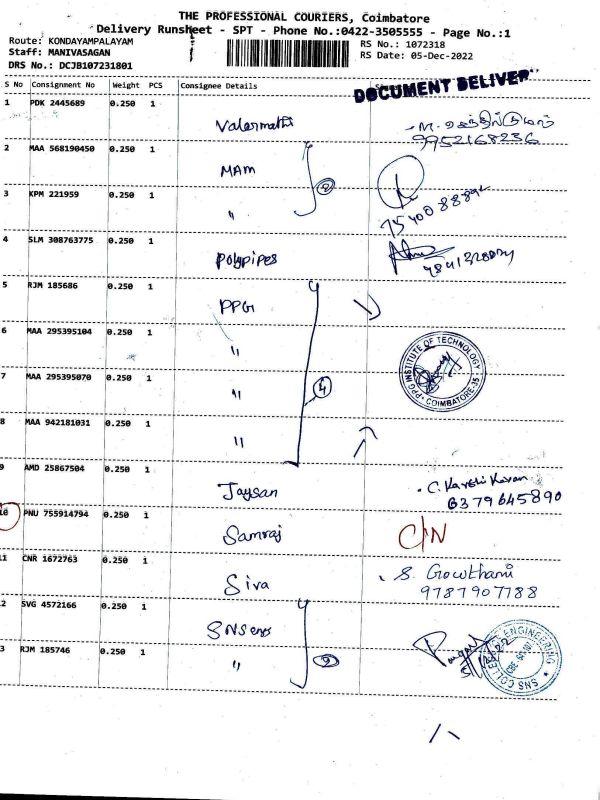 THE PROFESSIONAL COURIERS, Coimbatore
Delivery Runsheet - SPT - Phone No.:0422-3505555 - Page No.:1
Route: KONDAYAMPALAYAM
Staff: MANIVASAGAN
DRS No.: DCJB107231801
RS No.: 1072318
RS Date: 05-Dec-2022
S No Consignment No Weight PCS Consignee Details
DOCUMENT DELIVER
1 PDK 2445689 0.250 1 Valarmathi
9952168236
2 MAA 568190450 0.250 1 MAM
3 KPM 221959 0.250 1 "
2
4 SLM 308763775 0.250 1 Polypipes
5 RJM 185686 0.250 1 PPG
6 MAA 295395104 0.250 1 "
7 MAA 295395070 0.250 1 "
8 MAA 942181031 0.250 1 "
4
PPG INSTITUTE OF TECHNOLOGY
COIMBATORE-35
9 AMD 25867504 0.250 1 Jaysan
6379645890
10 PNU 755914794 0.250 1 Samraj C/N
11 CNR 1672763 0.250 1 Siva S. Gowthami
9787907788
2 SVG 4572166 0.250 1
3 RJM 185746 0.250 1 "
2
SNS COLLE ENGINEERING